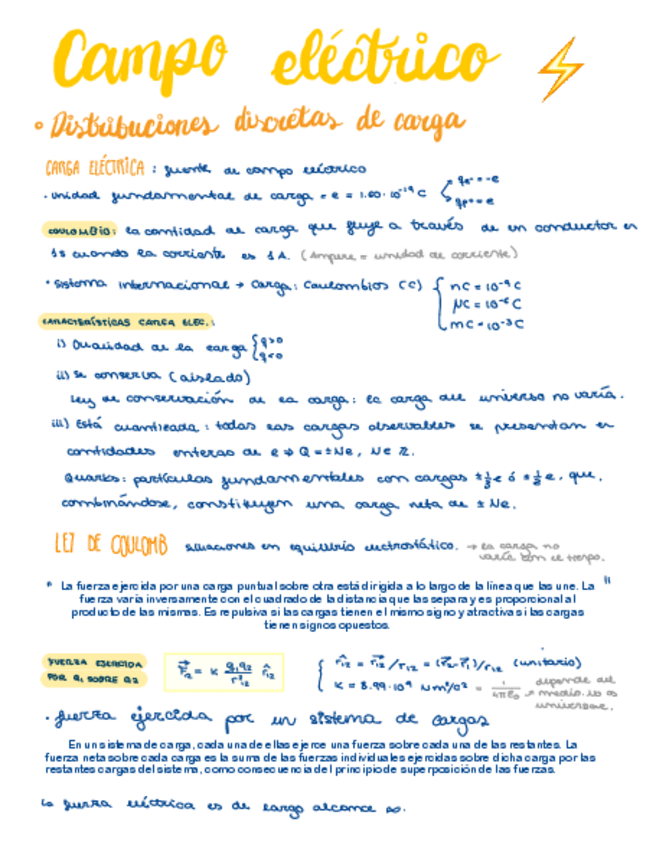 Campo eléctrico
• Distribuciones discretas de carga
CARGA ELÉCTRICA : fuente de campo eléctrico
· unidad fundamental de carga = e = 1.60·10⁻¹⁹ C qe⁻ = -e
qp = e
COULOMBIO: la cantidad de carga que fluye a través de un conductor en
1s cuando la corriente es 1A. (Ampere = unidad de corriente)
· Sistema internacional → Carga: Coulombios (C) { nC = 10⁻⁹ C
μC = 10⁻⁶ C
mC = 10⁻³ C
CARACTERÍSTICAS CARGA ELEC.:
i) Dualidad de la carga { q>0
q<0
ii) Se conserva (aislado)
Ley de conservación de la carga: la carga del universo no varía.
iii) Está cuantizada: todas las cargas observables se presentan en
cantidades enteras de e ⇒ Q = ±Ne, N∈ℤ.
Quarks: partículas fundamentales con cargas ± e ó ± e, que,
combinándose, constituyen una carga neta de ± Ne.
LEY DE COULOMB situaciones en equilibrio electrostático. → la carga no
varía con el tiempo.
" La fuerza ejercida por una carga puntual sobre otra está dirigida a lo largo de la línea que las une. La "
fuerza varía inversamente con el cuadrado de la distancia que las separa y es proporcional al
producto de las mismas. Es repulsiva si las cargas tienen el mismo signo y atractivas i las cargas
tienen signos opuestos.
FUERZA EJERCIDA
POR Q₁ SOBRE Q₂
F⃗₁₂ = k q₁q₂/r²₁₂ r̂₁₂
{ r̂₁₂ = r⃗₁₂/r₁₂ = (r⃗₂-r⃗₁)/r₁₂ (unitario)
K = 8.99·10⁹ Nm²/C² = 1/4πε₀ → depende del
medio. No es
universal.
· fuerza ejercida por un sistema de cargas
En un sistema de carga, cada una de ellas ejerce una fuerza sobre cada una de las restantes. La
fuerza neta sobre cada carga es la suma de las fuerzas individuales ejercidas sobre dicha carga por las
restantes cargas del sistema, como consecuencia del principio de superposición de las fuerzas.
La fuerza eléctrica es de largo alcance ∞.